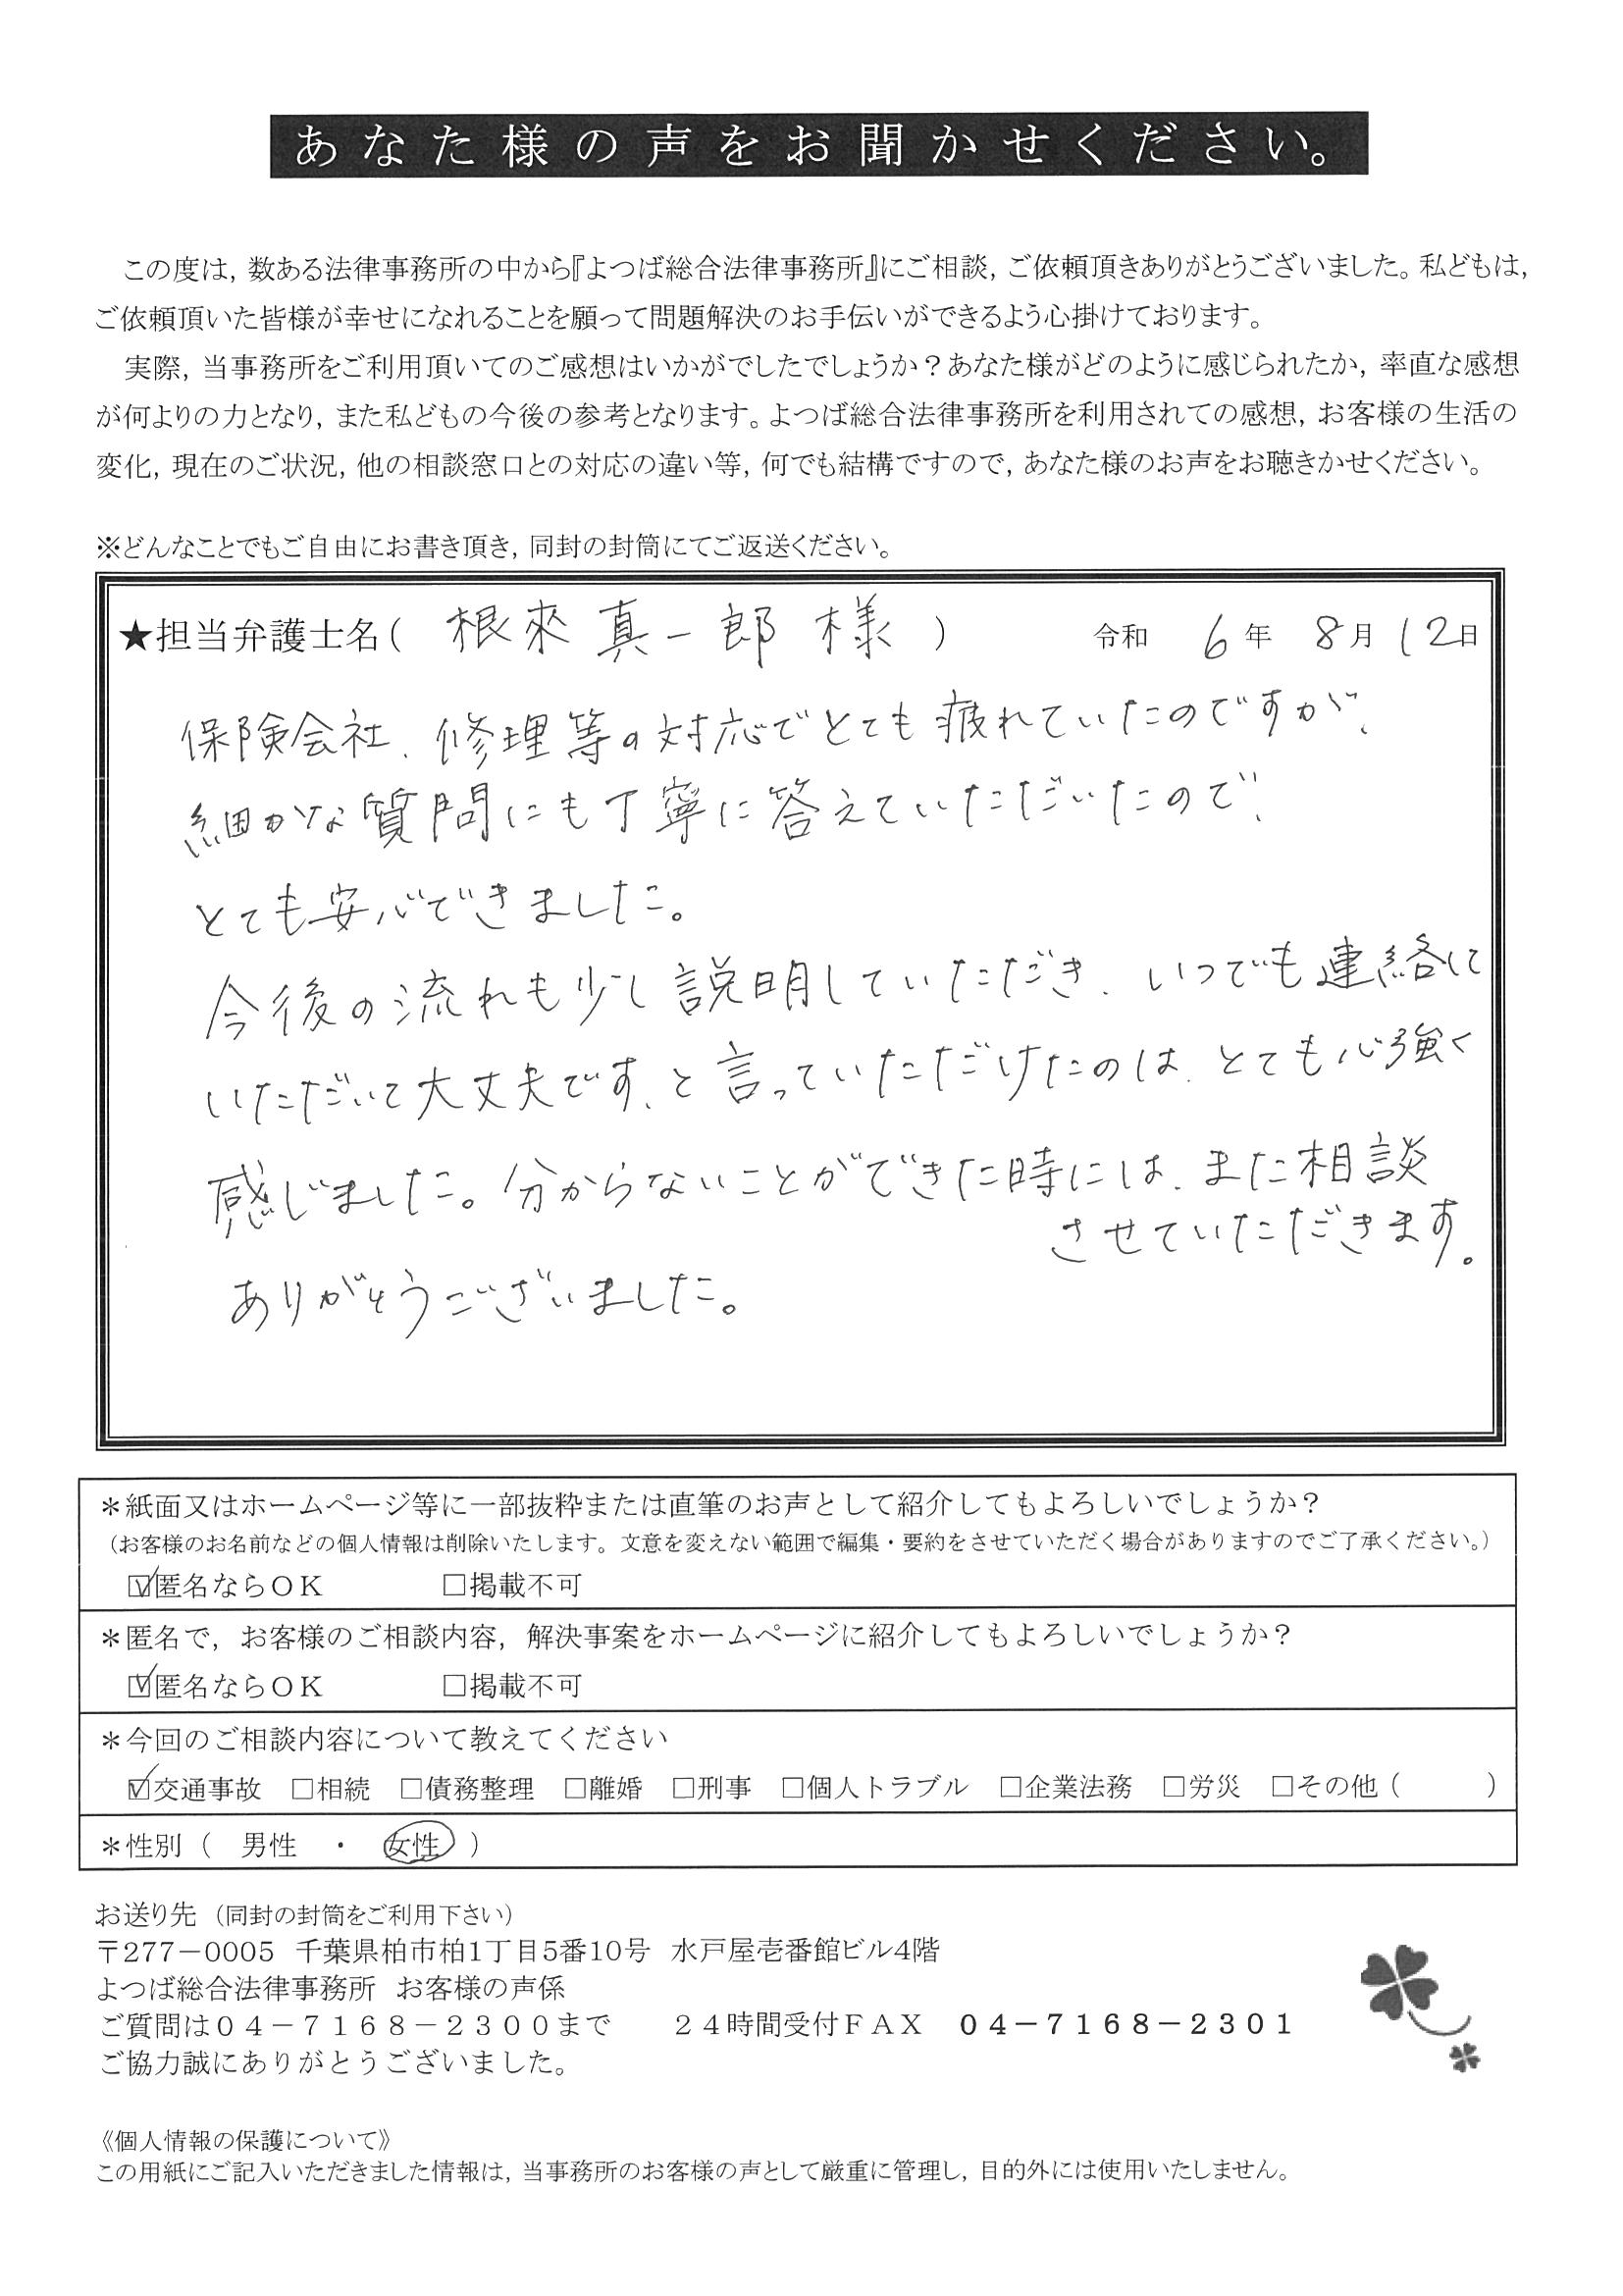 あなた様の声をお聞かせください。
この度は，数ある法律事務所の中から『よつば総合法律事務所』にご相談，ご依頼頂きありがとうございました。私どもは，
ご依頼頂いた皆様が幸せになれることを願って問題解決のお手伝いができるよう心掛けております。
実際，当事務所をご利用頂いてのご感想はいかがでしたでしょうか？あなた様がどのように感じられたか，率直な感想
が何よりの力となり，また私どもの今後の参考となります。よつば総合法律事務所を利用されての感想，お客様の生活の
変化，現在のご状況，他の相談窓口との対応の違い等，何でも結構ですので，あなた様のお声をお聴きかせください。
※どんなことでもご自由にお書き頂き，同封の封筒にてご返送ください。
★担当弁護士名（ 根來 真一郎 様 ） 令和 6年 8月 12日
保険会社、修理等の対応でとても疲れていたのですが、
細かな質問にも丁寧に答えていただいたので、
とても安心できました。
今後の流れも少し説明していただき、いつでも連絡して
いただいて大丈夫です、と言っていただけたのは、とても心強く
感じました。分からないことができた時には、また相談
させていただきます。
ありがとうございました。
＊紙面又はホームページ等に一部抜粋または直筆のお声として紹介してもよろしいでしょうか？
（お客様のお名前などの個人情報は削除いたします。文意を変えない範囲で編集・要約をさせていただく場合がありますのでご了承ください。）
☑匿名ならＯＫ □掲載不可
＊匿名で，お客様のご相談内容，解決事案をホームページに紹介してもよろしいでしょうか？
☑匿名ならＯＫ □掲載不可
＊今回のご相談内容について教えてください
☑交通事故 □相続 □債務整理 □離婚 □刑事 □個人トラブル □企業法務 □労災 □その他（ ）
＊性別（ 男性 ・ 女性 ）
お送り先（同封の封筒をご利用下さい）
〒277－0005 千葉県柏市柏1丁目5番10号 水戸屋壱番館ビル4階
よつば総合法律事務所 お客様の声係
ご質問は０４－７１６８－２３００まで ２４時間受付ＦＡＸ ０４－７１６８－２３０１
ご協力誠にありがとうございました。
《個人情報の保護について》
この用紙にご記入いただきました情報は，当事務所のお客様の声として厳重に管理し，目的外には使用いたしません。